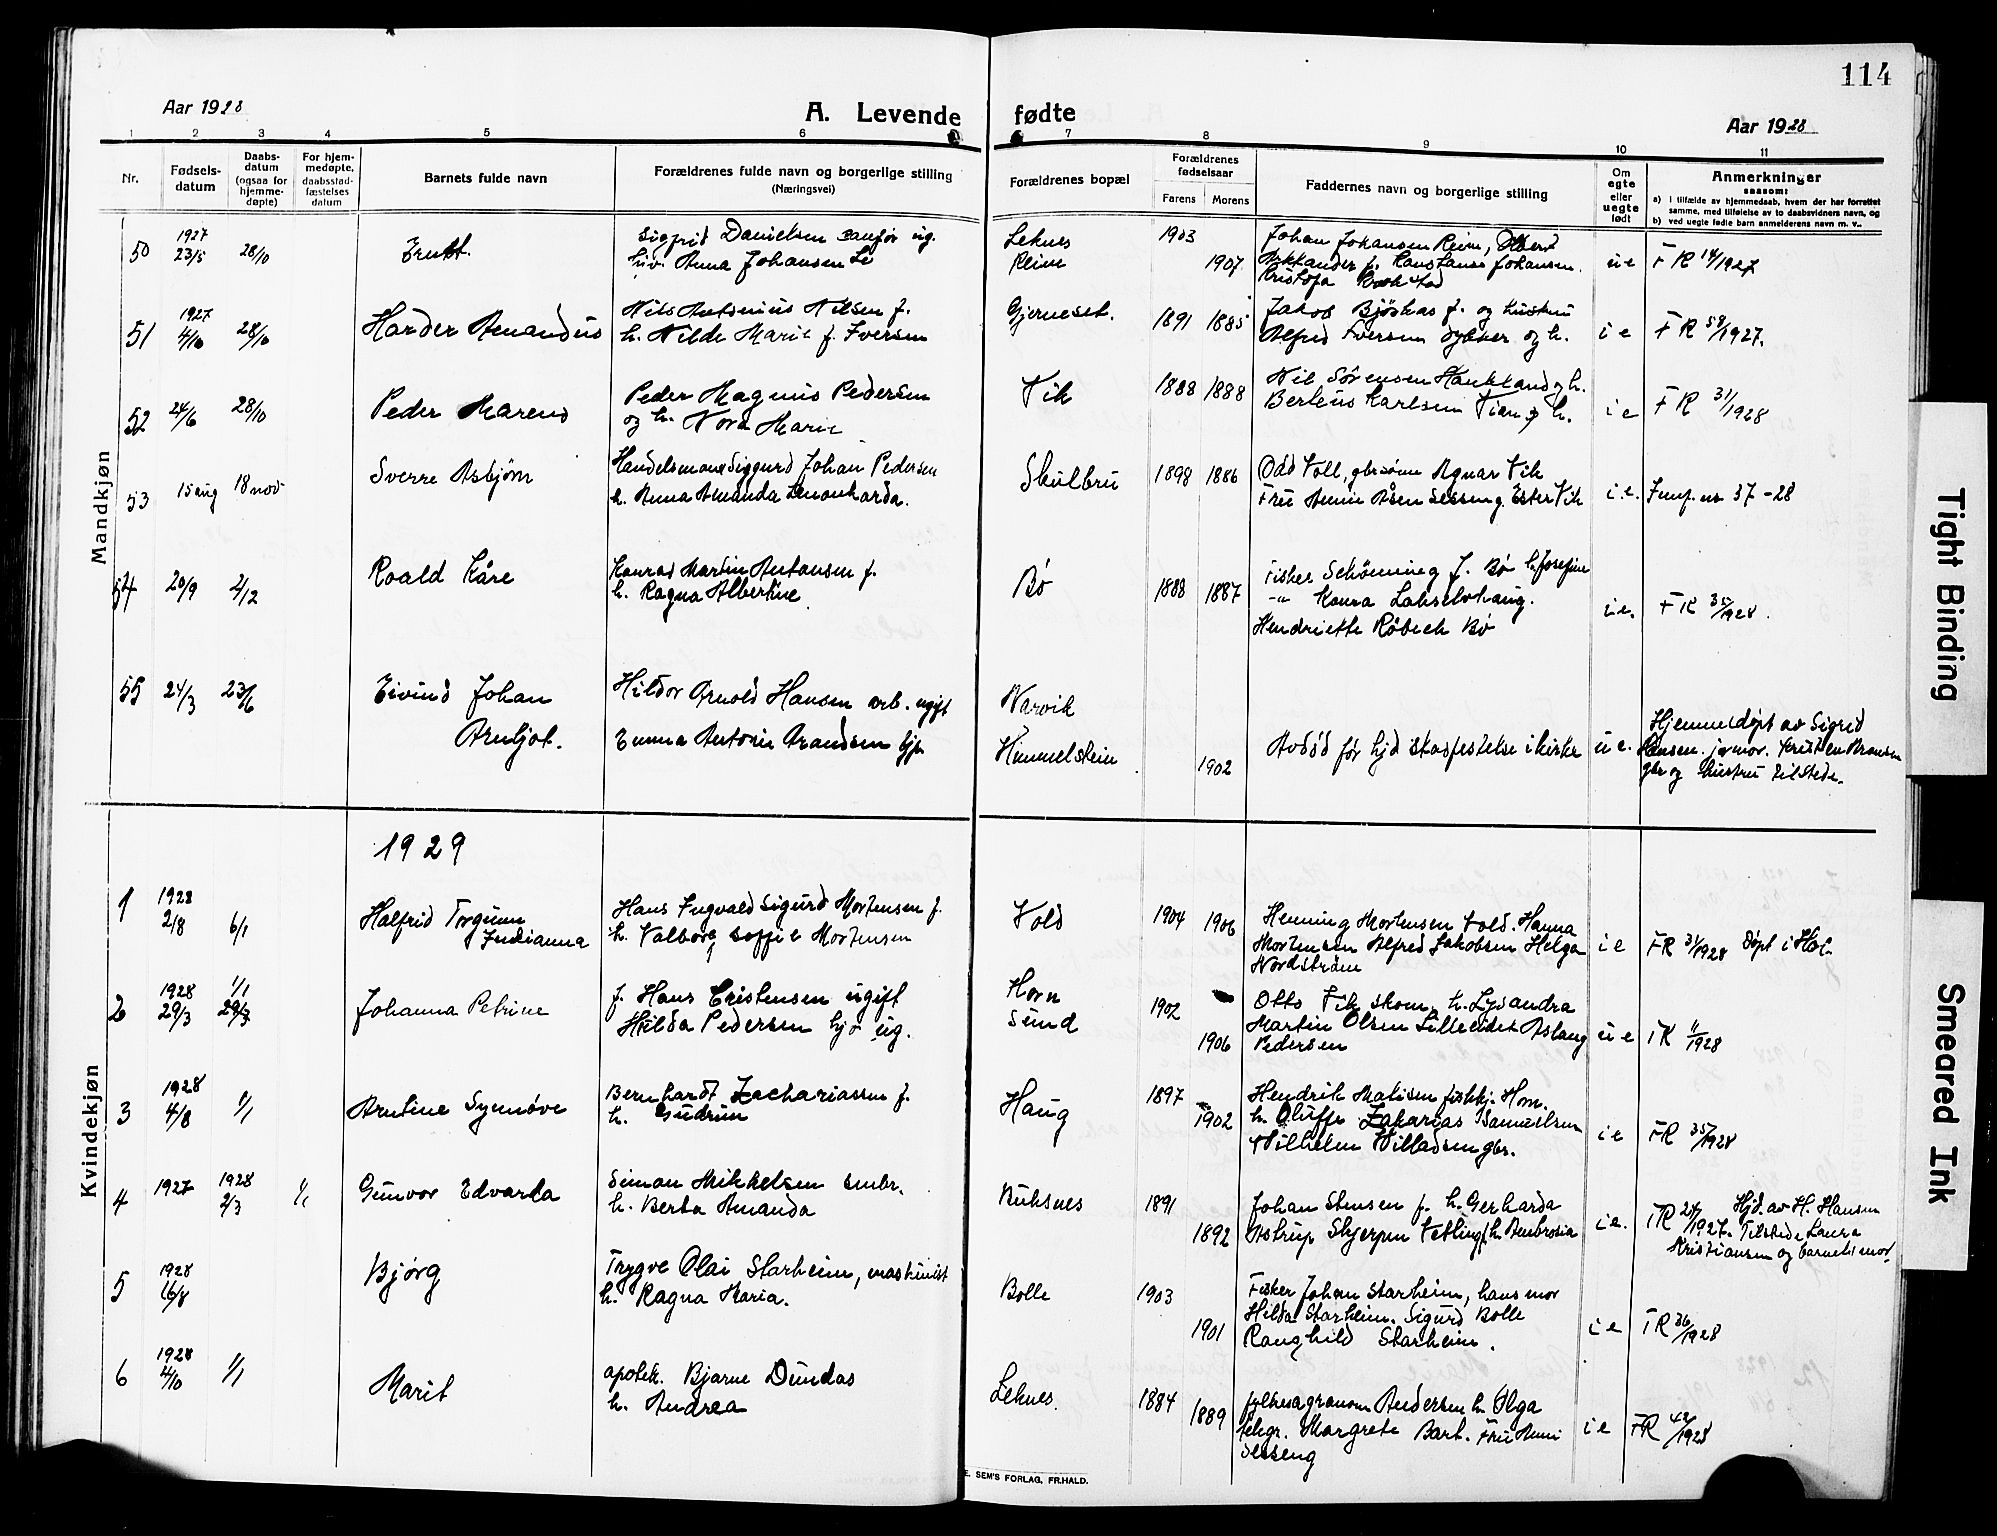 114
Aar 1928
A. Levende fødte
Aar 1928
1 2 3 4 5 6 7 8 9 10 11
Nr.
Fødsels-
datum
Daabs-
datum
(ogsaa for
hjemme-
døpte)
For hjem-
medøpte,
daabsstad-
fæstelses
datum
Barnets fulde navn
Forældrenes fulde navn og borgerlige stilling
(Næringsvei)
Forældrenes bopæl
Forældrenes
fødselsaar
Farens Morens
Faddernes navn og borgerlige stilling
Om
egte
eller
uegte
født
Anmerkninger
saasom:
a) i tilfælde av hjemmedaab, hvem der har forrettet
samme, med tilføielse av to daabsvidners navn, og
b) ved uegte fødte barn anmelderens navn m. v.
Mandkjøn
50 1927 23/5 28/10
Sigfrid Danielsen ug.
Anna Johansen
Leknes
Reine
1903
1907
Johan Johansen Reine,
Johansen.
u e
FR 14/1927
51 1927 4/10 28/10
Harder Amandus
Nils Antonius Nilsen f.
h. Hilda Marie f. Iversen
Gjerneset.
1891 1885
Jakob f. og hustru
Alfred Iversen og h.
i e
FR 58/1927.
52 24/6 28/10
Peder Marend
Peder Magnus Pedersen
og h. Nora Marie
Vik
1888 1888
Nil Sørensen Haukland og h.
Berteus Karlsen h.
i e
FR 31/1928
53 15 aug 18 nov
Sverre Asbjørn
Handelsmann Siggurd Johan Pedersen
h. Anna Amanda Lenonharda.
Skulbru
1898 1886
Odd Voll, Agnar Vik
Fru Åsen Ester Vik
i e.
nr 37-28
54 20/9 2/12
Roald Kåre
Konrad Martin Antonsen f.
h. Ragna Albertine
Bø
1888 1887
Fisker Schönning f. Bø h. Josefine
-"- Konra
Hendriette Røbech Bø
i e.
FR 35/1928.
55 24/3 23/6
Eivind Johan
Arnljot.
Hildor Arnold Hansen arb. ugift
Emma Antonie
Narvik
Himmelstein
1902
Avdød før hjd stadfestelse i kirke
u e.
Hjemmedøpt av Sigrid
Hansen. jormor. Kristen
gbr og hustru tilstede.
Kvindekjøn
1929
1 1928 2/8 6/1
Halfrid Torgunn
Julianna
Hans Ingvald Sigurd Mortensen f.
h. Valborg Soffie Mortensen
Vold
1904 1906
Henning Mortensen Vold. Hanna
Mortensen Alfred Jakobsen Helga
Nordstrøm
i e
FR 31/1928 Døpt i Hol.
2 1928 29/3 1/1 29/3
Johanna Petrine
f. Hans Cristensen ugift
Hilda Pedersen hjø ug.
Horn
Sund
1902
1906
Otto Vik skom. h. Lysandra
Martin Olsen Lilleeidet Aslaug
Pedersen
u e
FR 11/1928
3 1928 4/8 1/1
Arntine Synnøve
Bernhardt Zachariassen f.
h. Gudrun
Haug
1897
1902
Hendrik Matisen
h. Oluffe Zakarias Samuelsen
Vilhelm Villadsen gbr.
i e
FR 35/1928
4 1927 1928 2/3 1/1
Gunvor Edvarda
Simon Mikkelsen smbr.
h. Berta Amanda
Buksnes
1891
1892
Johan Stensen f. h. Gerharda
Astrup Skjerpen h. Ambrosia
i e.
FR 1927. Hjd. av H. Hansen
Tilstede Laura
Kristiansen og barnets mor.
5 1928 16/8
Bjørg
Trygve Olai Starheim, maskinist
h. Ragna Maria.
Bolle
1903
1901
Fisker Johan Starheim, hans mor
Hilda Starheim. Sigurd Bolle
Ranghild Starheim.
i e
FR 36/1928
6 1928 4/10 1/1
Marit
apotek. Bjarne Dundas
h. Andrea
Leknes.
1884
1889
fylkesagronom Andersen h. Olga
telegr. Margrete Fru
i e
FR 42/1928
E. SEM'S FORLAG, FR.HALD.
Tight Binding
Smeared Ink